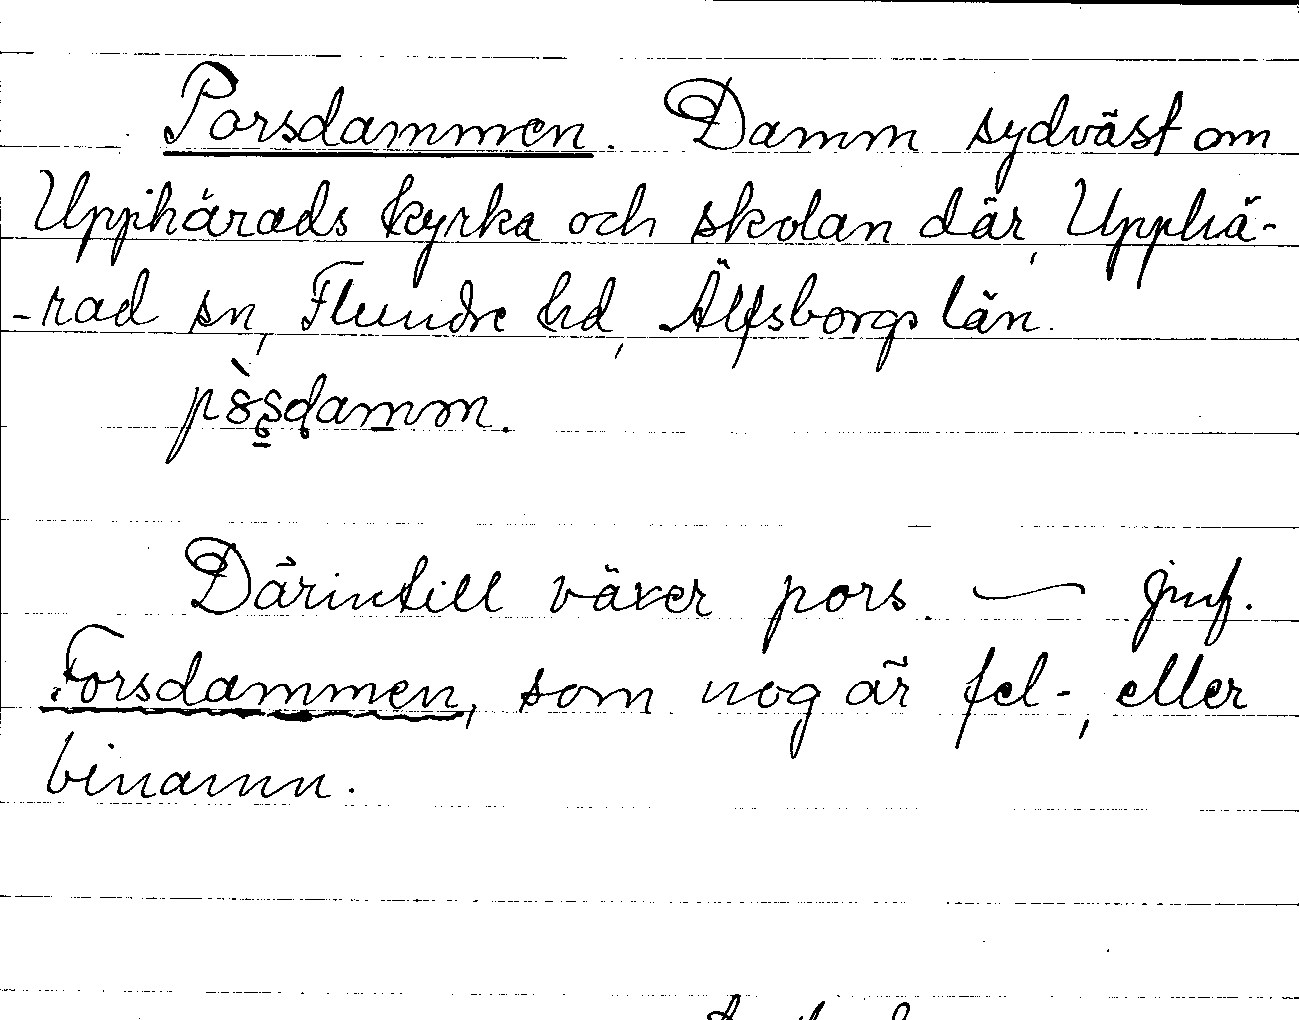 Porsdammen. Damm sydväst om
Upphärads kyrka och skolan där, Upphä-
-rad sn, Flundre hd, Älfsborgs län.
pòsdamm.
Därintill växer pors. — Jmf.
Forsdammen, som nog är fel-, eller
binamn.